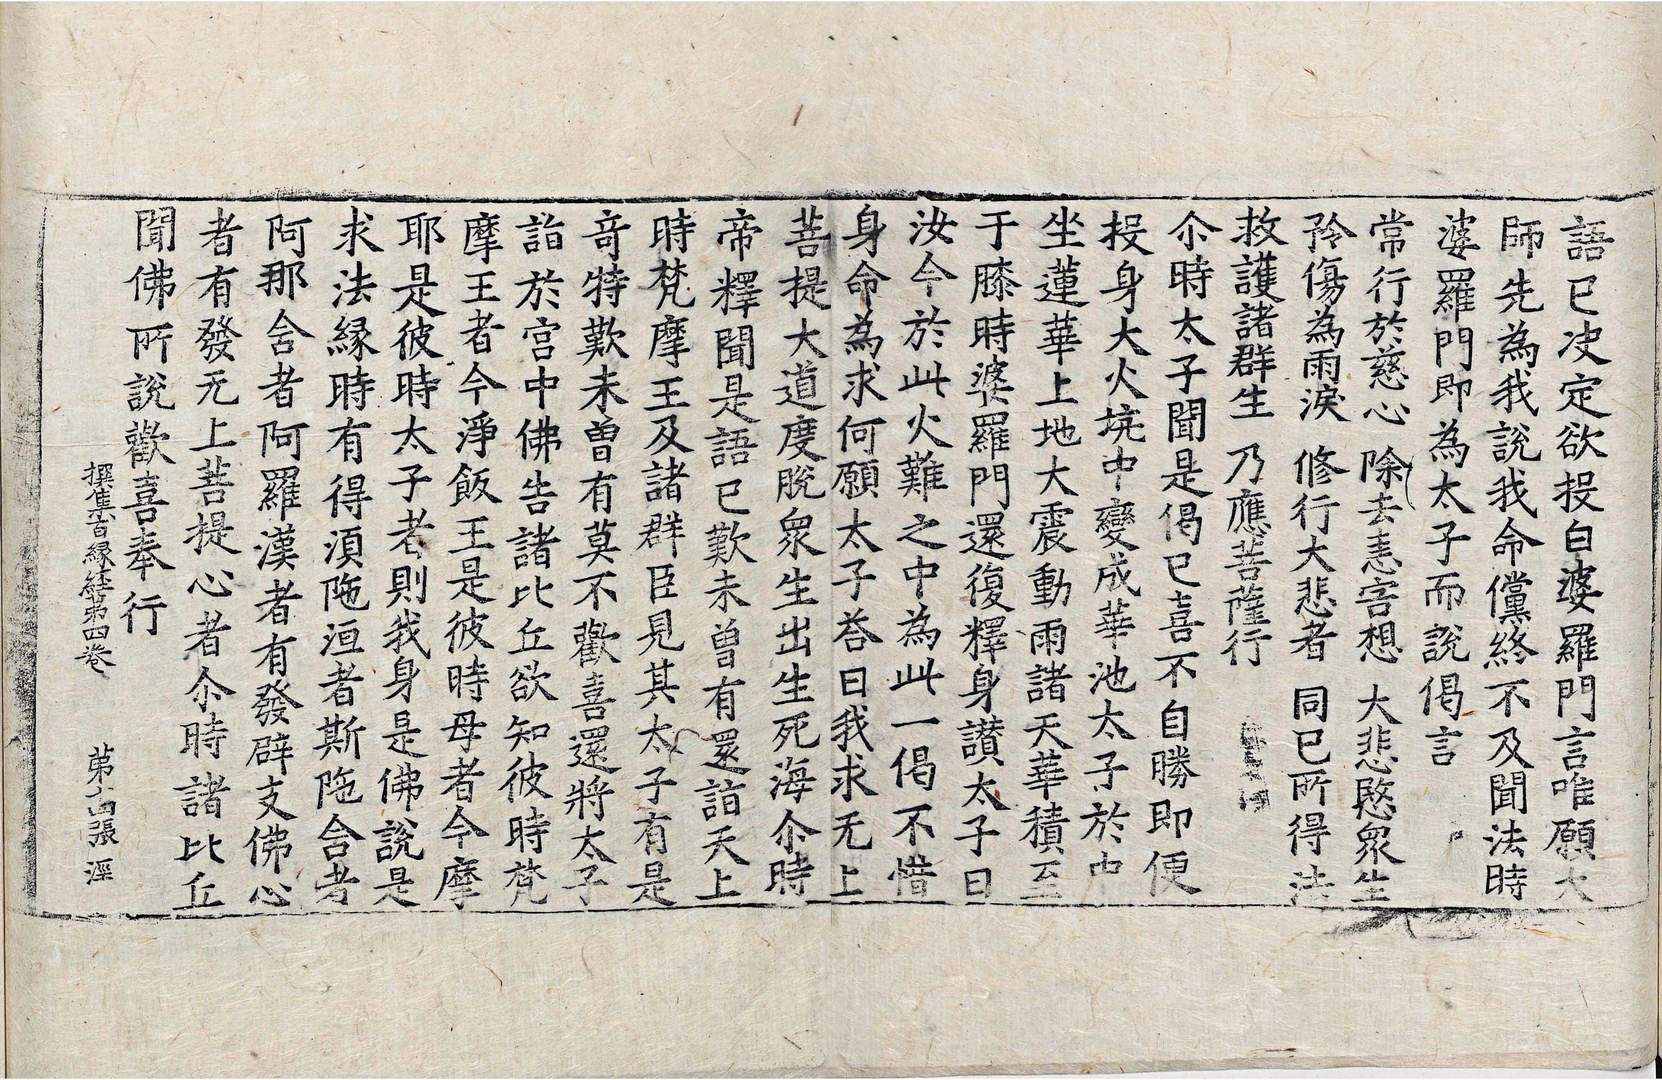 語已决定欲投白婆羅門言唯願大
師先為我說我命儻終不及聞法時
婆羅門即為太子而說偈言
常行於慈心 除去恚害想 大悲愍眾生
矜傷為雨淚 修行大悲者 同已所得法
救護諸群生 乃應菩薩行
尒時太子聞是偈已喜不自勝即便
投身大火坑中變成華池太子於中
坐蓮華上地大震動雨諸天華積至
于膝時婆羅門還復釋身讃太子曰
汝今於此火難之中為此一偈不惜
身命為求何願太子荅曰我求无上
菩提大道度脫眾生出生死海尒時
帝釋聞是語已歎未曾有還詣天上
時梵摩王及諸群臣見其太子有是
竒特歎未曾有莫不歡喜還將太子
詣於宮中佛告諸比丘欲知彼時梵
摩王者今淨飯王是彼時母者今摩
耶是彼時太子者則我身是佛說是
求法緣時有得湏陁洹者斯陁含者
阿那含者阿羅漢者有發辟支佛心
者有發无上菩提心者尒時諸比丘
聞佛所說歡喜奉行
撰集百緣經第四卷 第十四張 淫